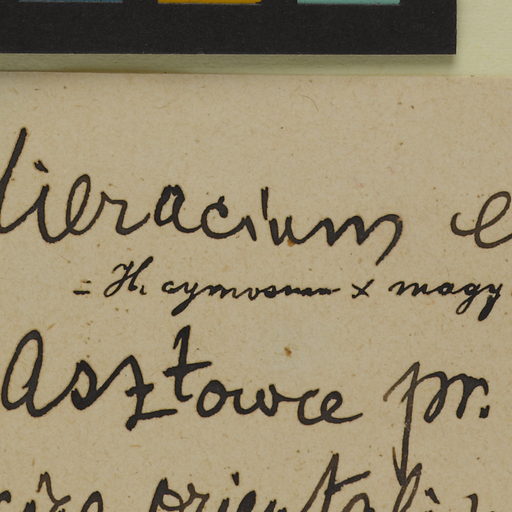 Hieracium
= H. cymosum x magy
Asztowce pr.
orientalis